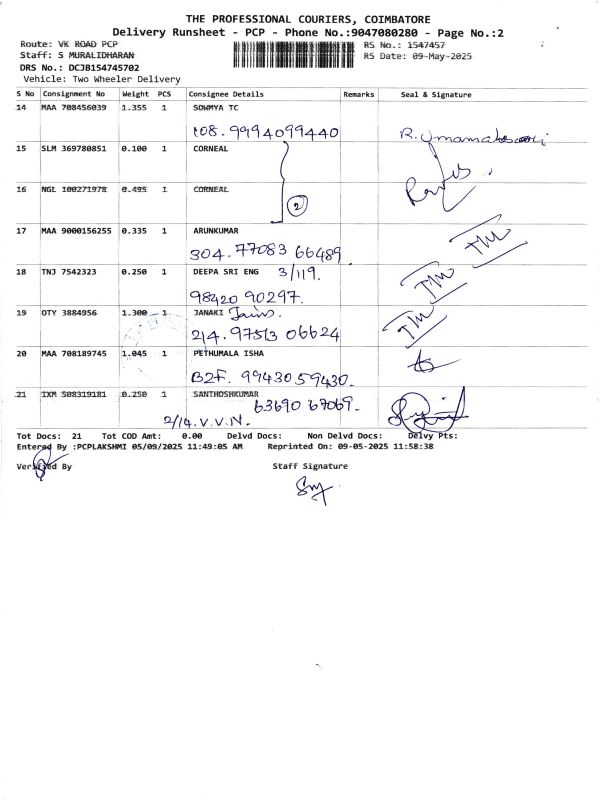 THE PROFESSIONAL COURIERS, COIMBATORE
Delivery Runsheet - PCP - Phone No.:9047080280 - Page No.:2
Route: VK ROAD PCP RS No.: 1547457
Staff: S MURALIDHARAN RS Date: 09-May-2025
DRS No.: DCJB154745702
Vehicle: Two Wheeler Delivery
S No Consignment No Weight PCS Consignee Details Remarks Seal & Signature
14 MAA 708456039 1.355 1 SOWMYA TC
108. 9994099440
15 SLM 369780851 0.100 1 CORNEAL
16 NGL 100271978 0.495 1 CORNEAL
2
17 MAA 9000156255 0.335 1 ARUNKUMAR
304. 77083 66489
18 TNJ 7542323 0.250 1 DEEPA SRI ENG 3/119.
98420 90297.
19 OTY 3884956 1.300 1 JANAKI Jains.
214. 97513 06624
20 MAA 708189745 1.045 1 PETHUMALA ISHA
B2F. 99430 59430.
21 IXM 508319181 0.250 1 SANTHOSHKUMAR
63690 67069.
2/14. V.V.N.
Tot Docs: 21 Tot COD Amt: 0.00 Delvd Docs: Non Delvd Docs: Delvy Pts:
Entered By :PCPLAKSHMI 05/09/2025 11:49:05 AM Reprinted On: 09-05-2025 11:58:38
Verified By Staff Signature